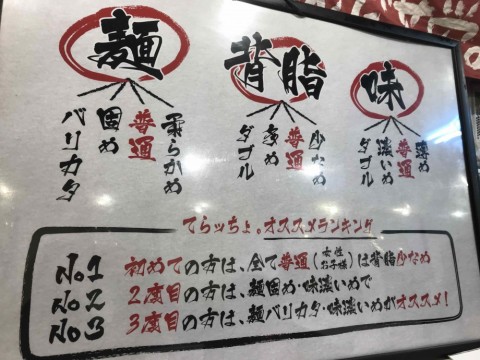 麺
柔らかめ
普通
固め
バリカタ
背脂
少なめ
普通
多め
ダブル
味
薄め
普通
濃いめ
ダブル
てらッちょ。オススメランキング
No1 初めての方は、全て普通(女性お子様)は背脂少なめ
No2 2度目の方は、麺固め・味濃いめで
No3 3度目の方は、麺バリカタ・味濃いめがオススメ!